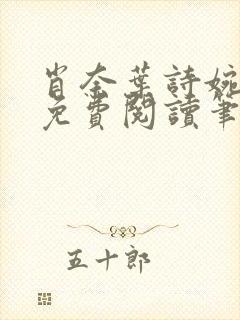 肖奈葉詩婉
免費閱讀筆
五十郎